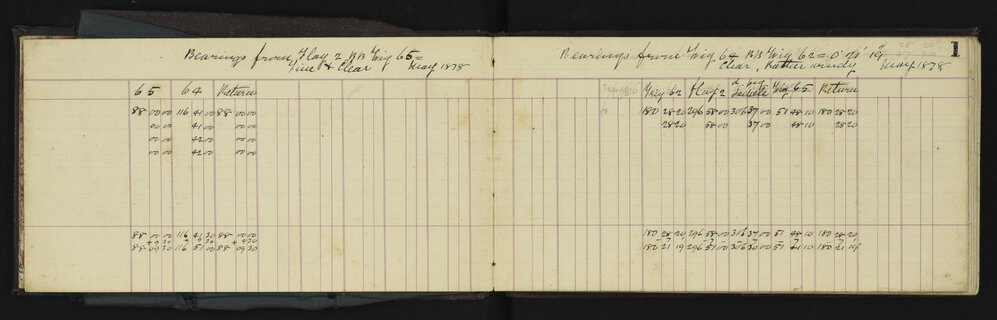 Bearings from Flag 2 RR Trig 65 =
Fine & Clear May 1878
65 64 Return
88 00 00 116 41 00 88 00 00
00 00 41 00 00 00
00 00 42 00 00 00
00 00 42 00 00 00
88 00 00 116 41 30 88 00 00
+ 9 30 9 30 + 9 30
88 09 30 116 51 00 88 09 30
1
Bearings from Trig 64 RR Trig 62 = 0° 0' 19"
Clear, Rather windy May 1878
Trig 62 Flag 2 Saddle Trig 65 Return
180 28 20 296 58 00 306 37 00 51 48 10 180 28 20
28 20 58 00 37 00 48 10 28 20
180 28 20 296 58 00 306 37 00 51 48 10 180 28 20
180 21 19 296 51 00 306 30 00 51 41 10 180 21 19